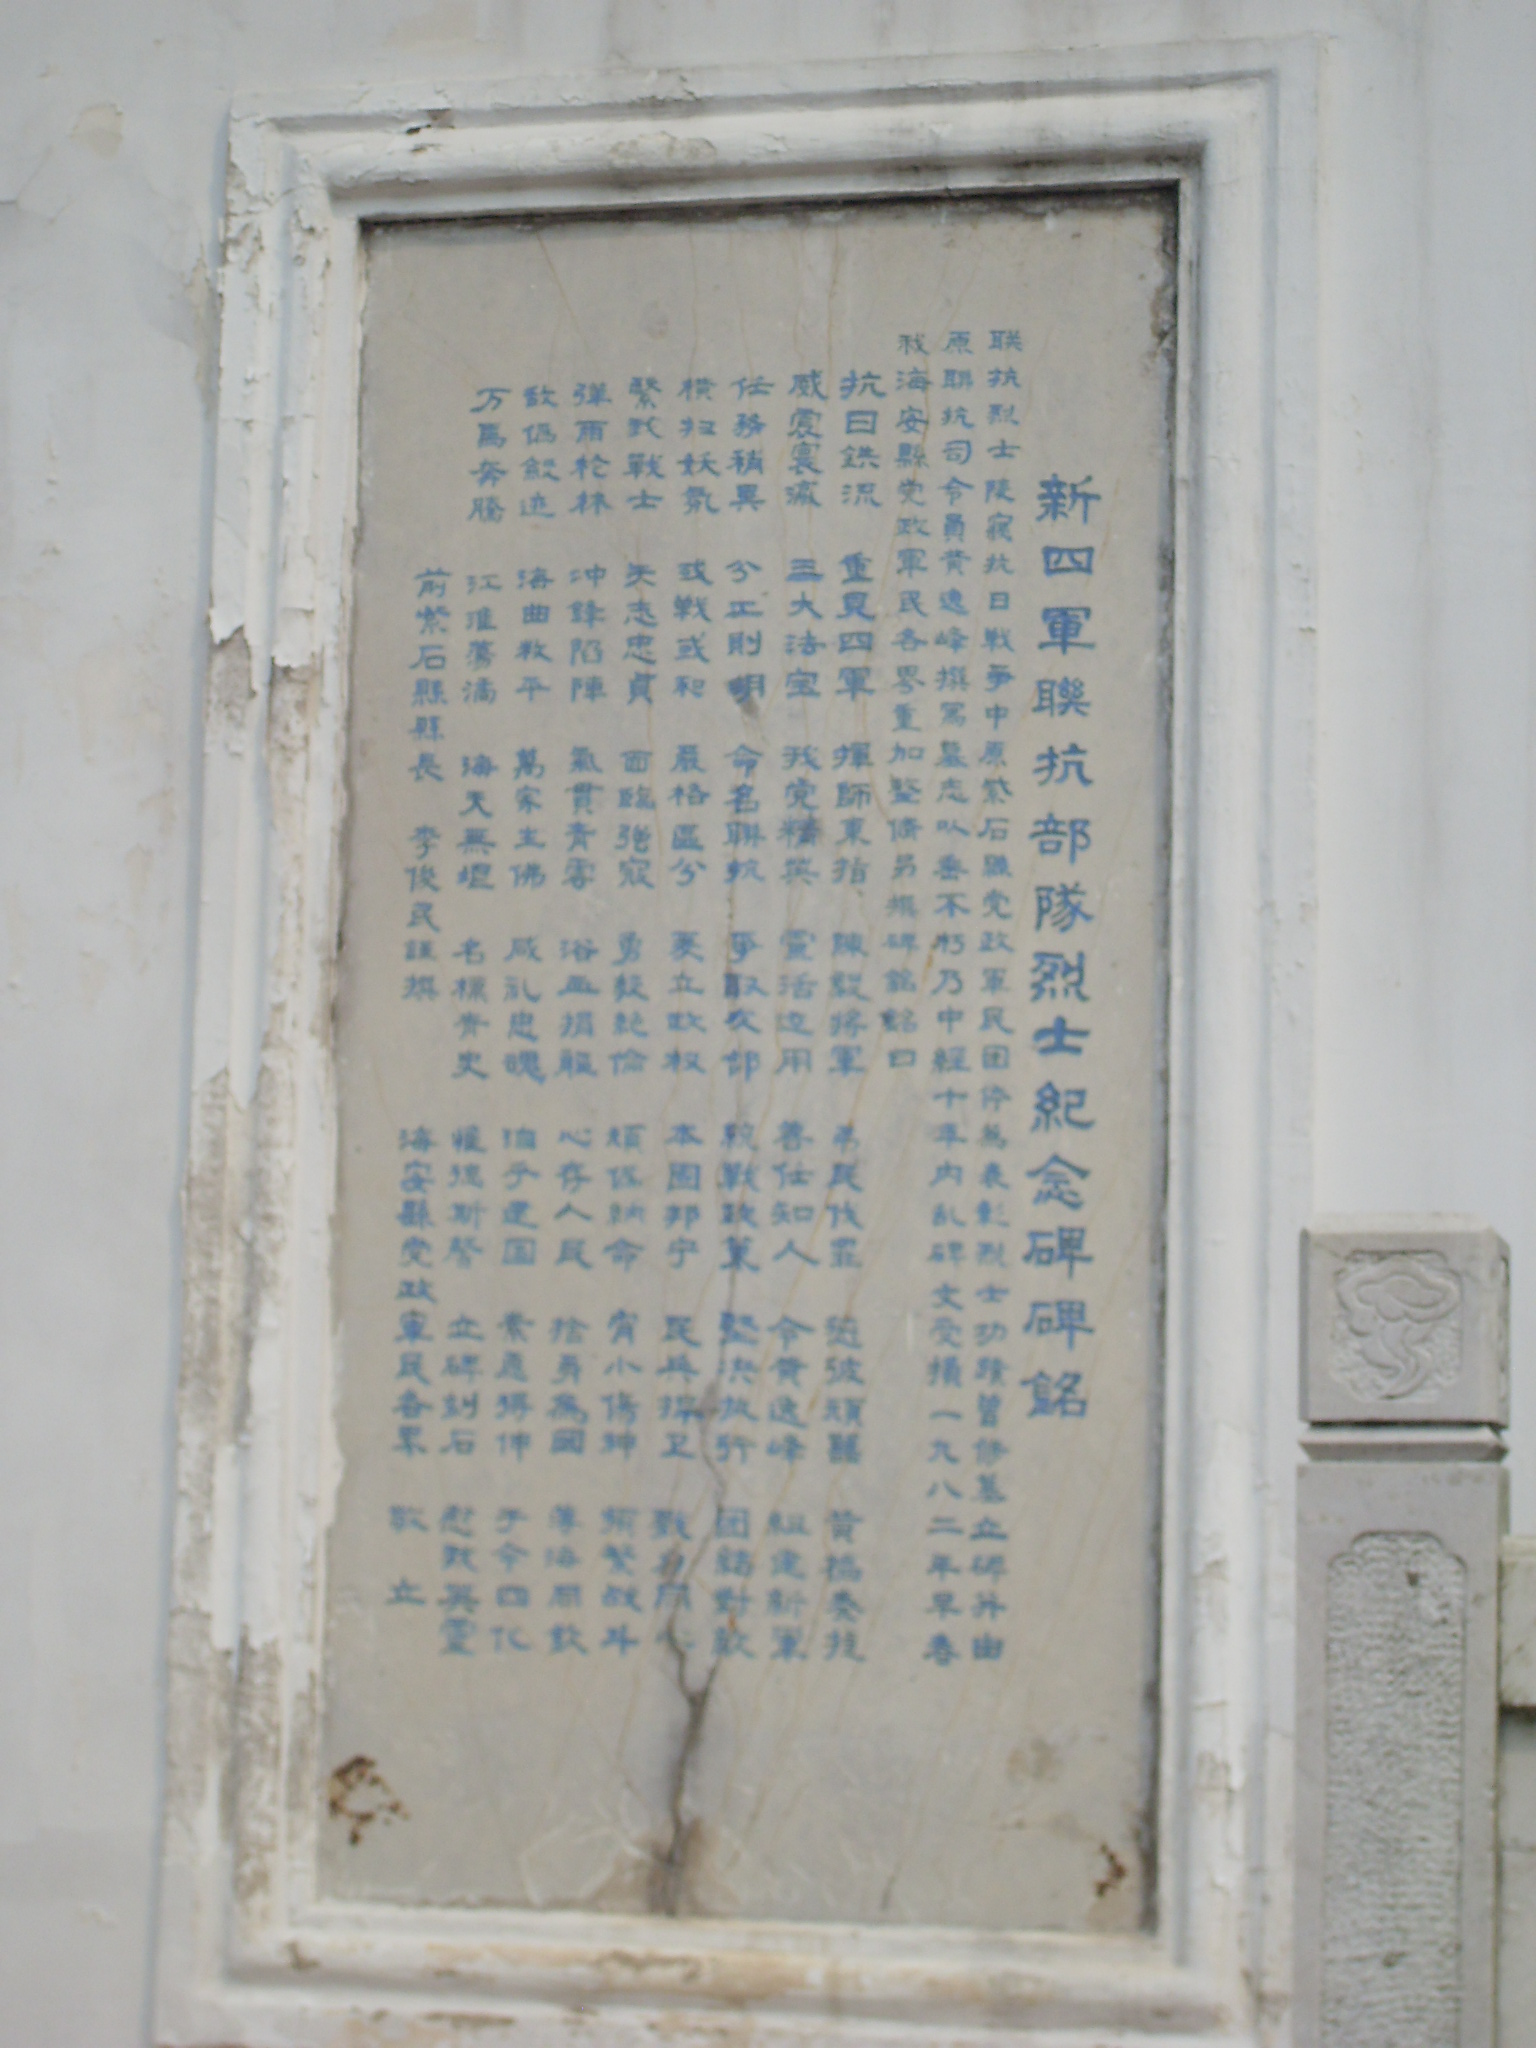 新四軍聯抗部隊烈士紀念碑碑銘
联抗烈士陵寝抗日戰爭中原紫石縣党政軍民因馋為表彰烈士功蹟曾修墓立碑并由
原聯抗司令員黄逸峰撰寫墓志以垂不朽乃中經十年内乱碑文受損一九八二年早春
我海安縣党政軍民各界重加整脩另撰碑銘銘曰
抗日鉄流 重見四軍 揮師東指 陳毅将軍 弔民伐罪 頑 黄橋奏技
威震寰瀛 三大法宝 我党精英 靈活运用 善任知人 令黄逸峰 組建新軍
任務稍異 分工則明 命名聯抗 爭取友部 統戰政策 堅決执行 团結對敌
横扫妖氛 或戰或和 嚴格區分 建立政权 本固邦宁 民兵捍卫
繄我戰士 矢志忠貞 面臨強寇 勇毅絕倫 頑伪納命 宵小傷神 頻繁战斗
弹雨枪林 冲鋒陷陣 氣貫青雲 浴血捐軀 心存人民 捨身為國 薄海同欽
敌伪絕迹 海曲敉平 萬家生佛 咸礼忠魂 洎乎建国 素愿得伸 于今四化
万馬奔騰 江淮蕩潏 海天無垠 名標青史 惟德斯馨 立碑刻石 慰我英靈
前紫石縣縣長 李俊民謹撰
海安縣党政軍民各界 敬 立